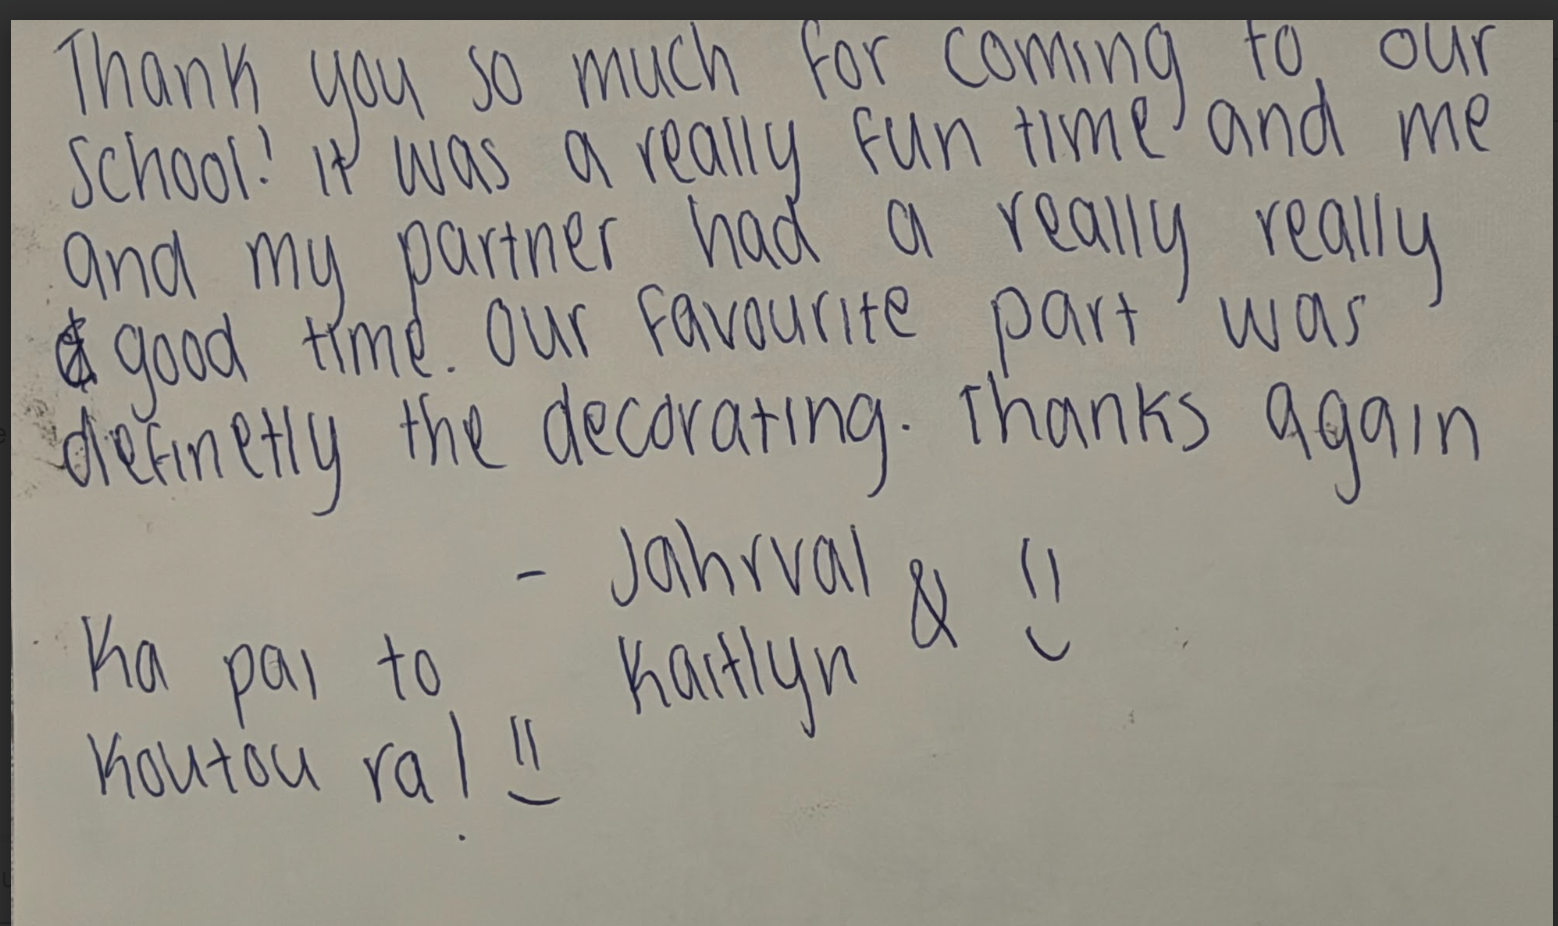 Thank you so much for coming to our
school! it was a really fun time and me
and my partner had a really really
good time. Our favourite part was
definetly the decorating. Thanks again
- Jahrval &
Kaitlyn
Ka pai to
Koutou ra!